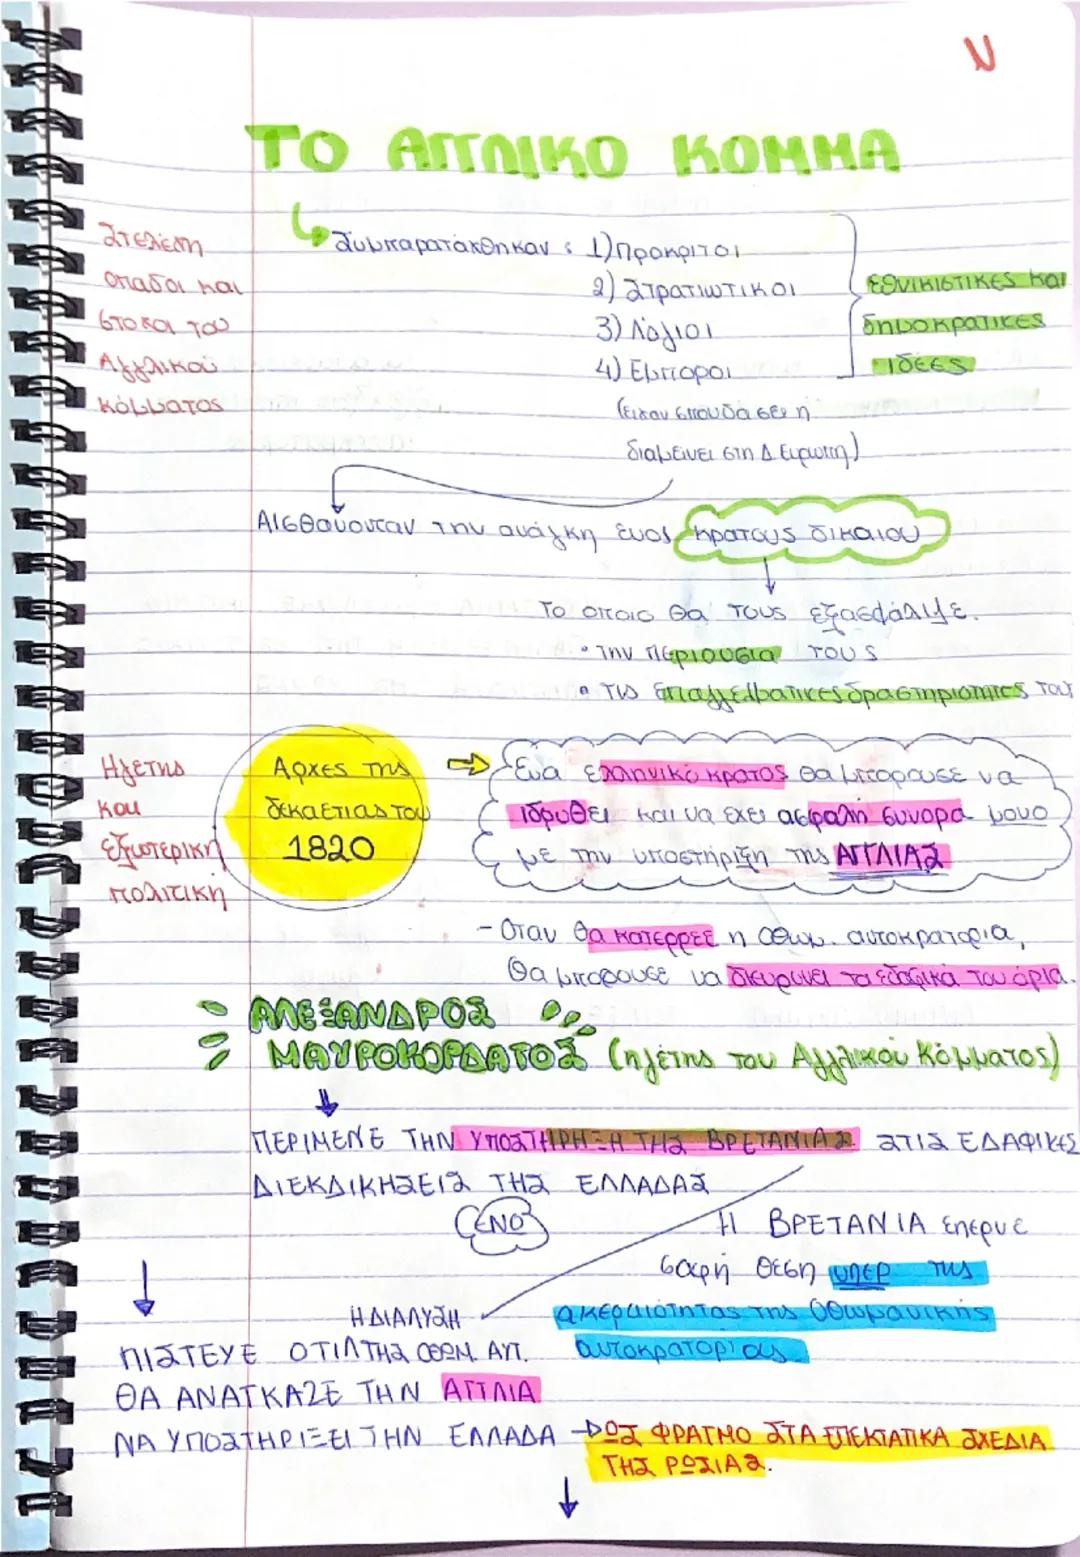 N
ΤΟ ΑΓΓΛΙΚΟ ΚΟΜΜΑ
Στελέχη
οπαδοι και
στοχοι του
Αγγλικού
κόμματος
Συμπαρατάχθηκαν : 1) Προκριτοι
2) Στρατιωτικοι
3) Λόγιοι
4) Εμποροι
(ειχαν σπουδασει η
διαμεινει στη Δ Ευρωπη)
εθνικιστικες και
δημοκρατικες
ιδέες
Αισθανονταν την ανάγκη ενος κρατους δικαιου
Το οποιο θα τους εξασφάλιζε.
• την περιουσια τους
• τις επαγγελματικες δραστηριοτητες τους
Ηγετης
και
εξωτερικη
πολιτικη
Αρχες της
δεκαετιας του
1820
Ένα ελληνικό κρατος θα μπορουσε να
ιδρυθει και να εχει ασφαλη συνορα μονο
με την υποστήριξη της ΑΓΓΛΙΑΣ
- Οταν θα κατερρεε η Οθωμ. αυτοκρατορια,
θα μπορουσε να διευρυνει τα εδαφικά του όρια.
ΑΛΕΞΑΝΔΡΟΣ
ΜΑΥΡΟΚΟΡΔΑΤΟΣ (ηγέτης του Αγγλικού Κόμματος)
ΠΕΡΙΜΕΝΕ ΤΗΝ ΥΠΟΣΤΗΡΗΞΗ ΤΗΣ ΒΡΕΤΑΝΙΑΣ ΣΤΙΣ ΕΔΑΦΙΚΕΣ
ΔΙΕΚΔΙΚΗΣΕΙΣ ΤΗΣ ΕΛΛΑΔΑΣ
ΕΝΟ
Η ΒΡΕΤΑΝΙΑ έπερνε
σαφή θεση υπερ της
ακεραιότητας της Οθωμανικής
αυτοκρατορίας
Η ΔΙΑΛΥΣΗ
ΠΙΣΤΕΥΕ ΟΤΙ ΤΗΣ ΟΘΩΜ. ΑΥΤ.
ΘΑ ΑΝΑΓΚΑΖΕ ΤΗΝ ΑΓΓΛΙΑ
ΝΑ ΥΠΟΣΤΗΡΙΞΕΙ ΤΗΝ ΕΛΛΑΔΑ → ΩΣ ΦΡΑΓΜΟ ΣΤΑ ΕΠΕΚΤΑΤΙΚΑ ΣΧΕΔΙΑ
ΤΗΣ ΡΩΣΙΑΣ.